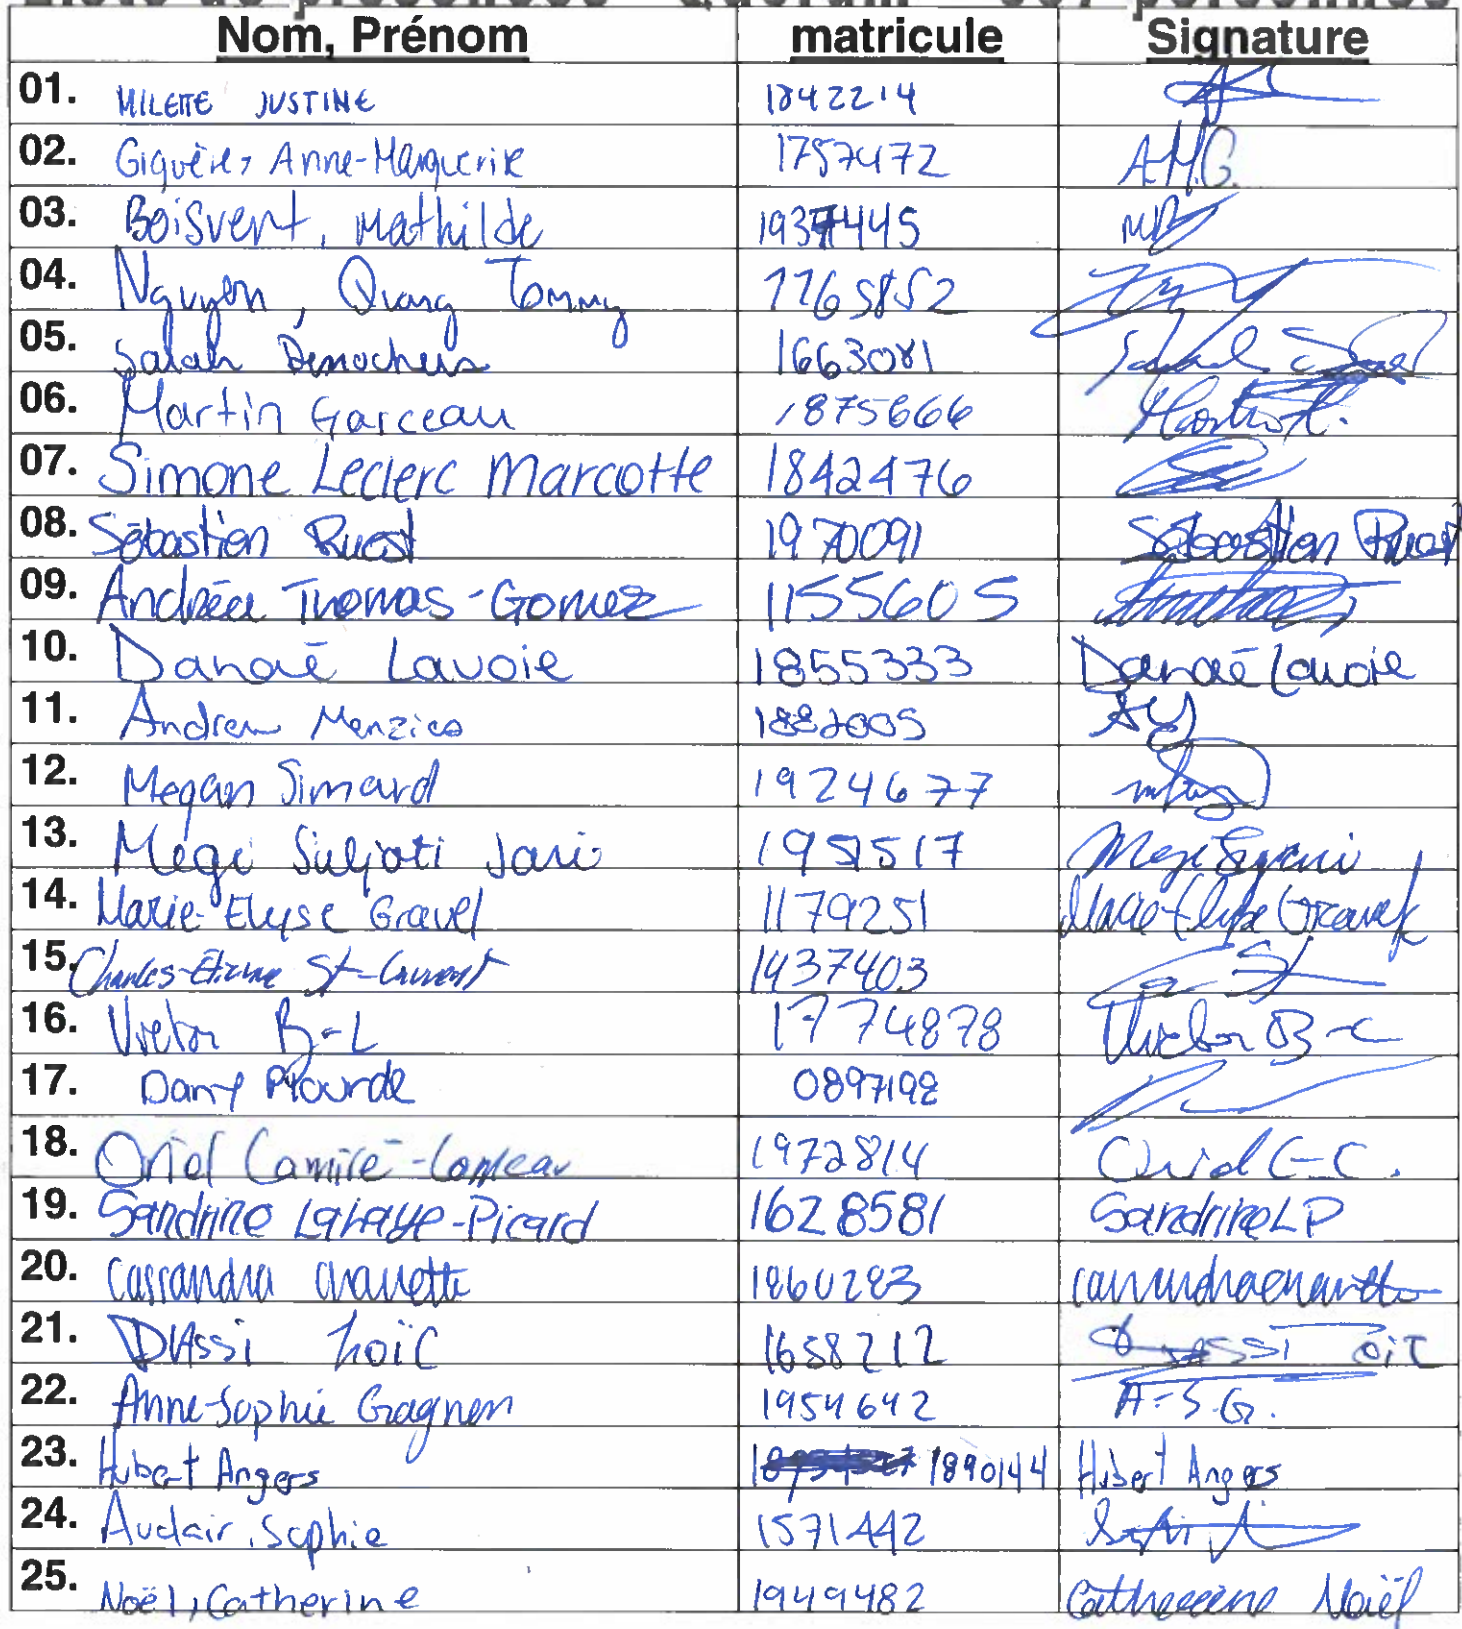 Nom, Prénom matricule Signature
01. MILETTE JUSTINE 1842214
02. Giguère, Anne-Marguerite 1757472 A.M.G.
03. Boisvert, Mathilde 1937445 MB
04. Nguyen, Quang Tommy 1765852
05. Salah 1663081
06. Martin Garceau 1875666
07. Simone Leclerc Marcotte 1842476
08. Sébastien Ruest 1970091 Sébastien Ruest
09. Andréa Thomas-Gomez 1155605
10. Danaé Lavoie 1855333 Danaé Lavoie
11. Andrew Menzies 1882005
12. Megan Simard 1924677
13. Megi Suljoti Jani
14. Marie-Elyse Gravel 1179251 Marie-Elyse Gravel
15. Charles-Étienne St-Laurent 1437403
16. Victor B-L 1774878 Victor B-L
17. Dany Plourde 0897192
18. Oriel Camiré-Comeau 1972814 Oriel C-C.
19. Sandrine Lahaye-Picard 1628581 Sandrine LP
20. Cassandra Chouette 1860283
21. DJASSI Loïc 1658212
22. Anne-Sophie Gagnon 1954642 A-S.G.
23. Hubert Angers 1890144 Hubert Angers
24. Auclair, Sophie 1571442
25. Noël, Catherine 1949482 Catherine Noël